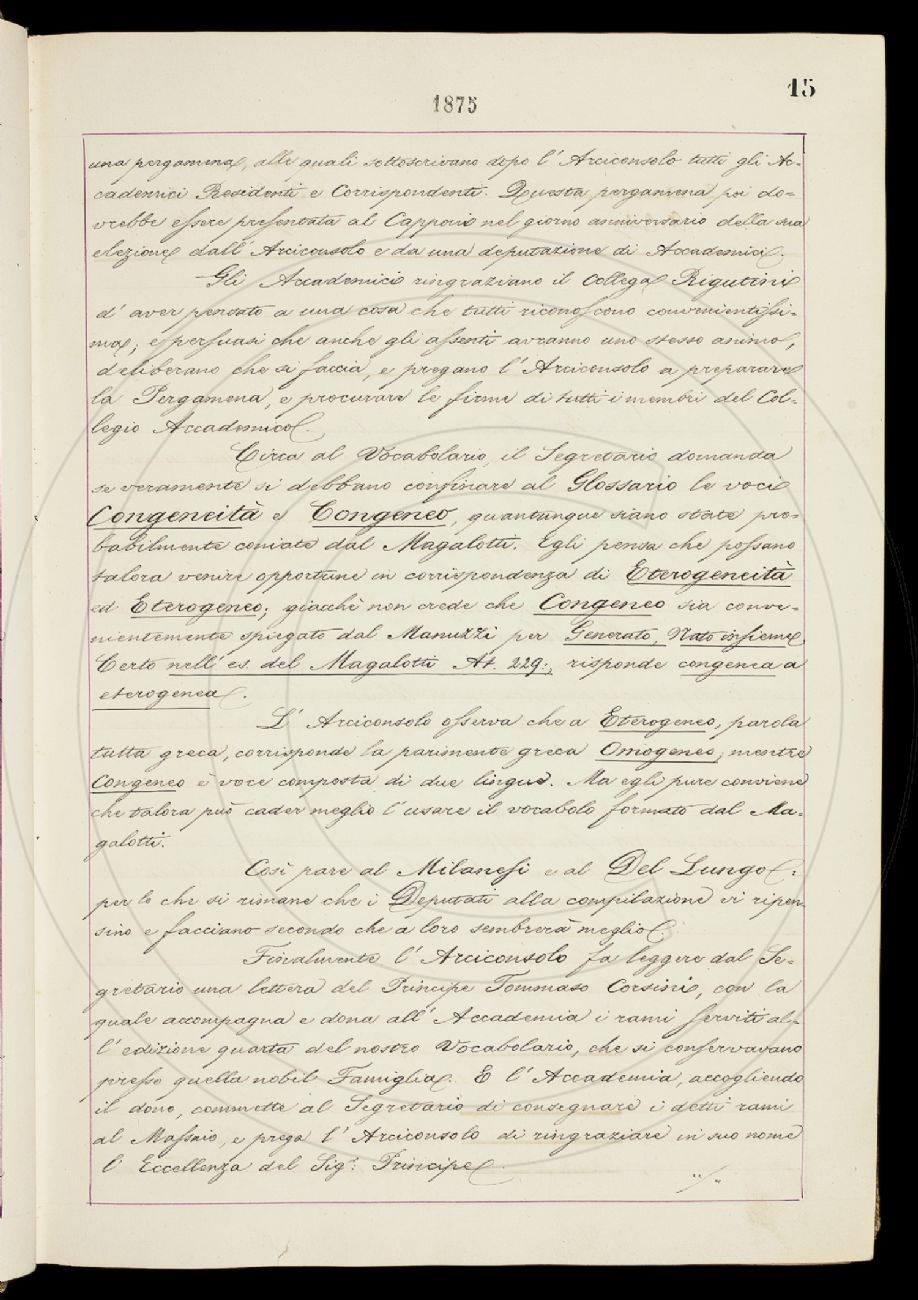 15
1875
una pergamena, alle quali sottoscrivano dopo l'Arciconsolo tutti gli Ac-
cademici Residenti e Corrispondenti. Questa pergamena poi do-
vrebbe essere presentata al Capponi nel giorno anniversario della sua
elezione dall'Arciconsolo e da una deputazione di Accademici.
Gli Accademici ringraziano il Collega Rigutini
d'aver pensato a una cosa che tutti riconoscono convenientissi-
ma; e persuasi che anche gli assenti avranno uno stesso animo,
deliberano che si faccia, e pregano l'Arciconsolo a preparare
la Pergamena, e procurare le firme di tutti i membri del Col-
legio Accademico.
Circa al Vocabolario, il Segretario domanda
se veramente si debbano confinare al Glossario le voci
Congeneità e Congeneo, quantunque siano state pro-
babilmente coniate dal Magalotti. Egli pensa che possano
talora venire opportune in corrispondenza di Eterogeneità
ed Eterogeneo; giacchè non crede che Congeneo sia conve-
nientemente spiegato dal Manuzzi per Generato, Nato insieme.
Certo nell'es. del Magalotti At. 229:, risponde congenea a
eterogenea.
L'Arciconsolo osserva che a Eterogeneo, parola
tutta greca, corrisponde la parimente greca Omogeneo; mentre
Congeneo è voce composta di due lingue. Ma egli pure conviene
che talora può cader meglio l'usare il vocabolo formato dal Ma-
galotti.
Così pare al Milanesi e al Del Lungo:
per lo che si rimane che i Deputati alla compilazione vi ripen-
sino e facciano secondo che a loro sembrerà meglio.
Finalmente l'Arciconsolo fa leggere dal Se-
gretario una lettera del Principe Tommaso Corsini, con la
quale accompagna e dona all'Accademia i rami serviti al-
l'edizione quarta del nostro Vocabolario, che si conservavano
presso quella nobil Famiglia. E l'Accademia, accogliendo
il dono, commette al Segretario di consegnare i detti rami
al Massaio, e prega l'Arciconsolo di ringraziare in suo nome
l'Eccellenza del Sig.r Principe.
"/"